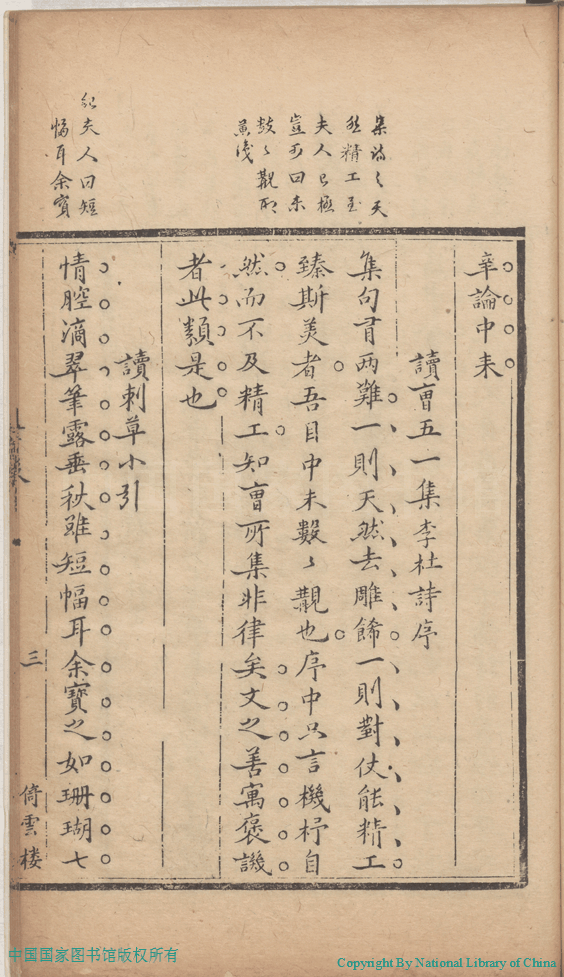 集詩之天
然精工至
夫人已極
豈可曰未
數數觀耶
紀夫人曰短
幅耳余寳
率論中未
讀曹五一集李杜詩序
集句有兩難一則天然去雕餙一則對仗能精工
臻斯美者吾目中未數〻觀也序中只言機杼自
然而不及精工知曹所集非律矣文之善寓褒譏
者此類是也
讀刺草小引
情腔滴翠筆露垂秋雖短幅耳余寳之如珊瑚七
三
倚雲楼
中国国家图书馆版权所有
Copyright By National Library of China